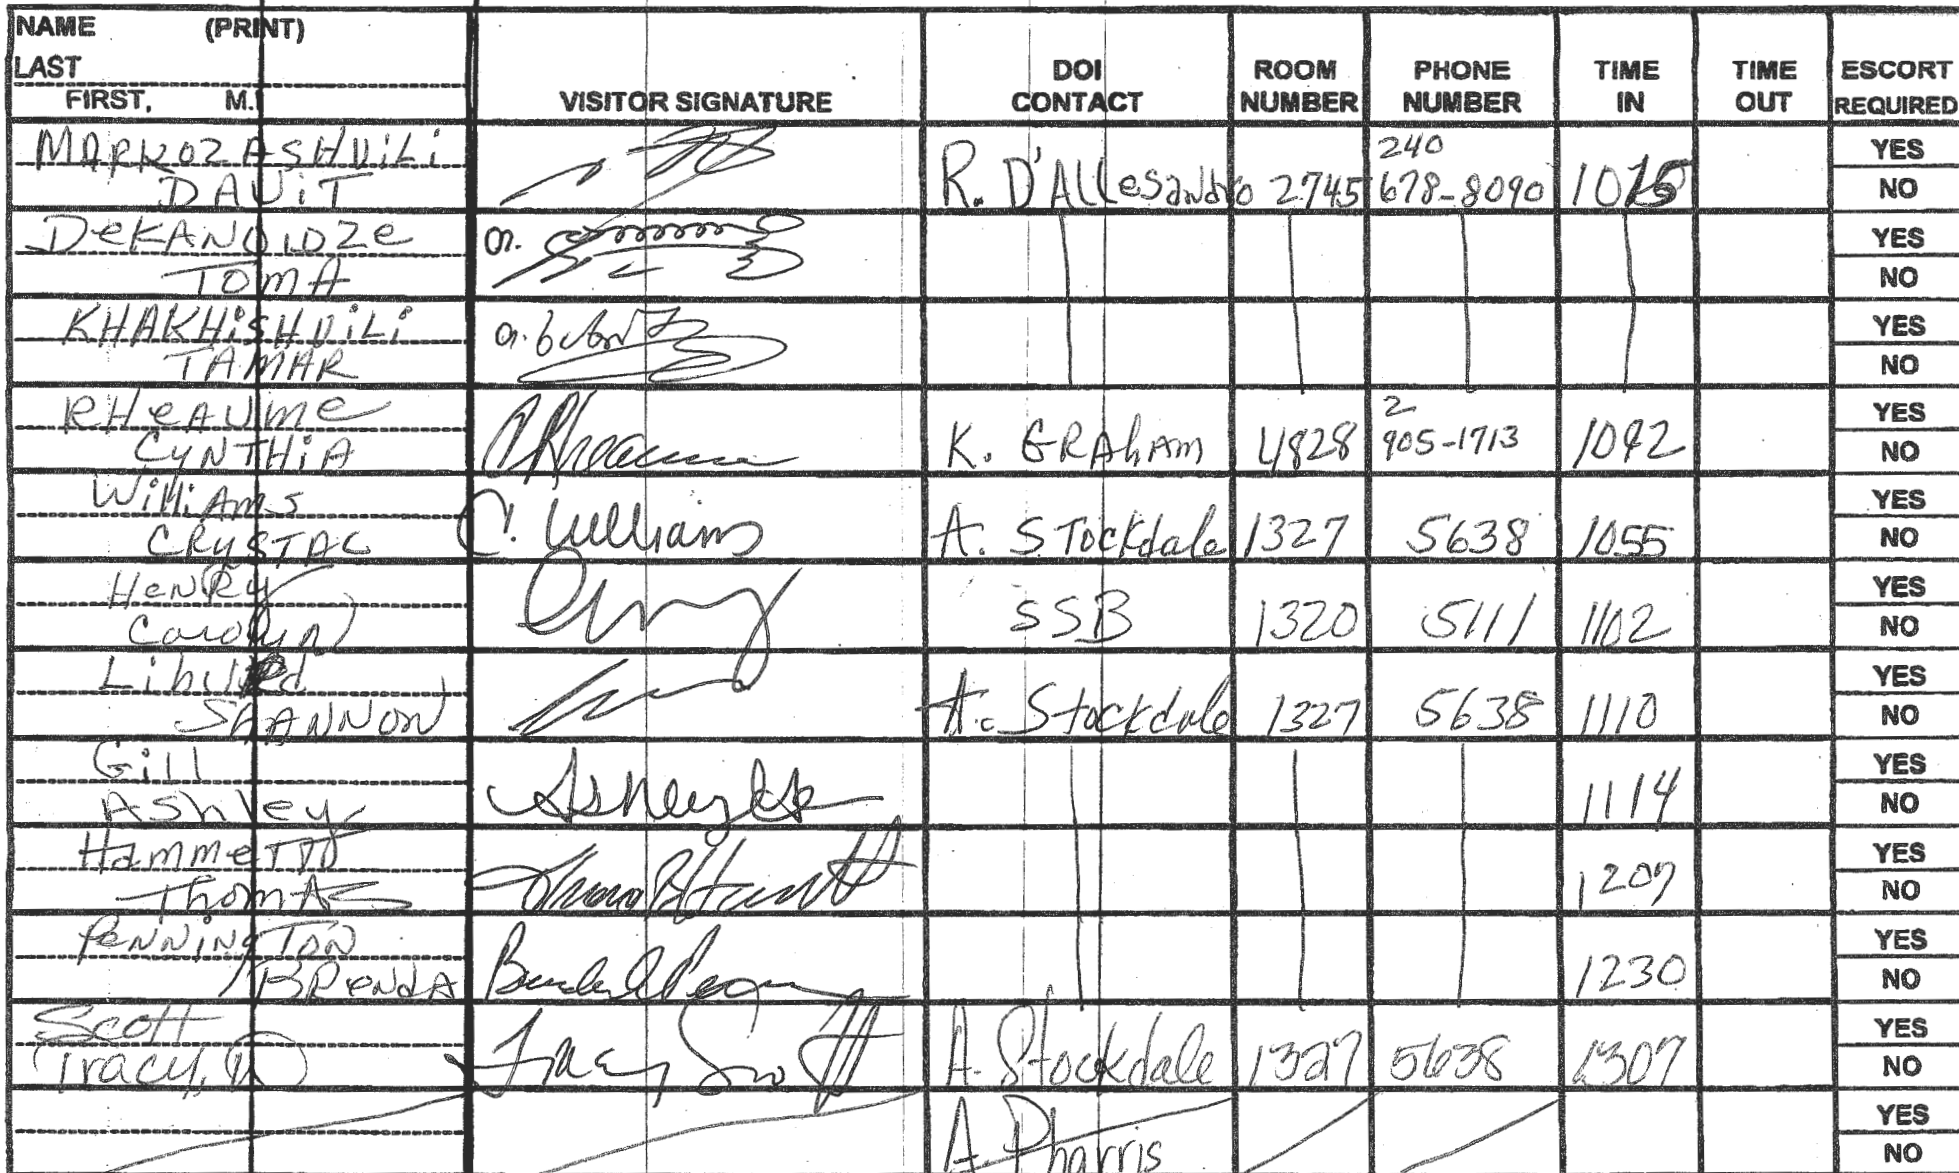 NAME (PRINT)
LAST
FIRST, M.I
VISITOR SIGNATURE
DOI CONTACT
ROOM NUMBER
PHONE NUMBER
TIME IN
TIME OUT
ESCORT REQUIRED
MARKOZASHVILI
DAVIT
R. D'Allesandro 2745 240 678-8090 1015
YES
NO
DEKANOIDZE
TOMA
YES
NO
KHAKHISHVILI
TAMAR
YES
NO
RHEAUME
CYNTHIA
K. GRAHAM 4828 2 905-1713 1042
YES
NO
Williams
CRYSTAL
C. Williams
A. Stockdale 1327 5638 1055
YES
NO
Henry
Carolyn
SSB 1320 5111 1102
YES
NO
SHANNON
A. Stockdale 1327 5638 1110
YES
NO
Gill
Ashley
Ashley
1114
YES
NO
Hammett
Thomas
1207
YES
NO
PENNINGTON
BRENDA
1230
YES
NO
Scott
Tracy,
Tracy Scott
A. Stockdale 1327 5638 1307
YES
NO
A Pharris
YES
NO